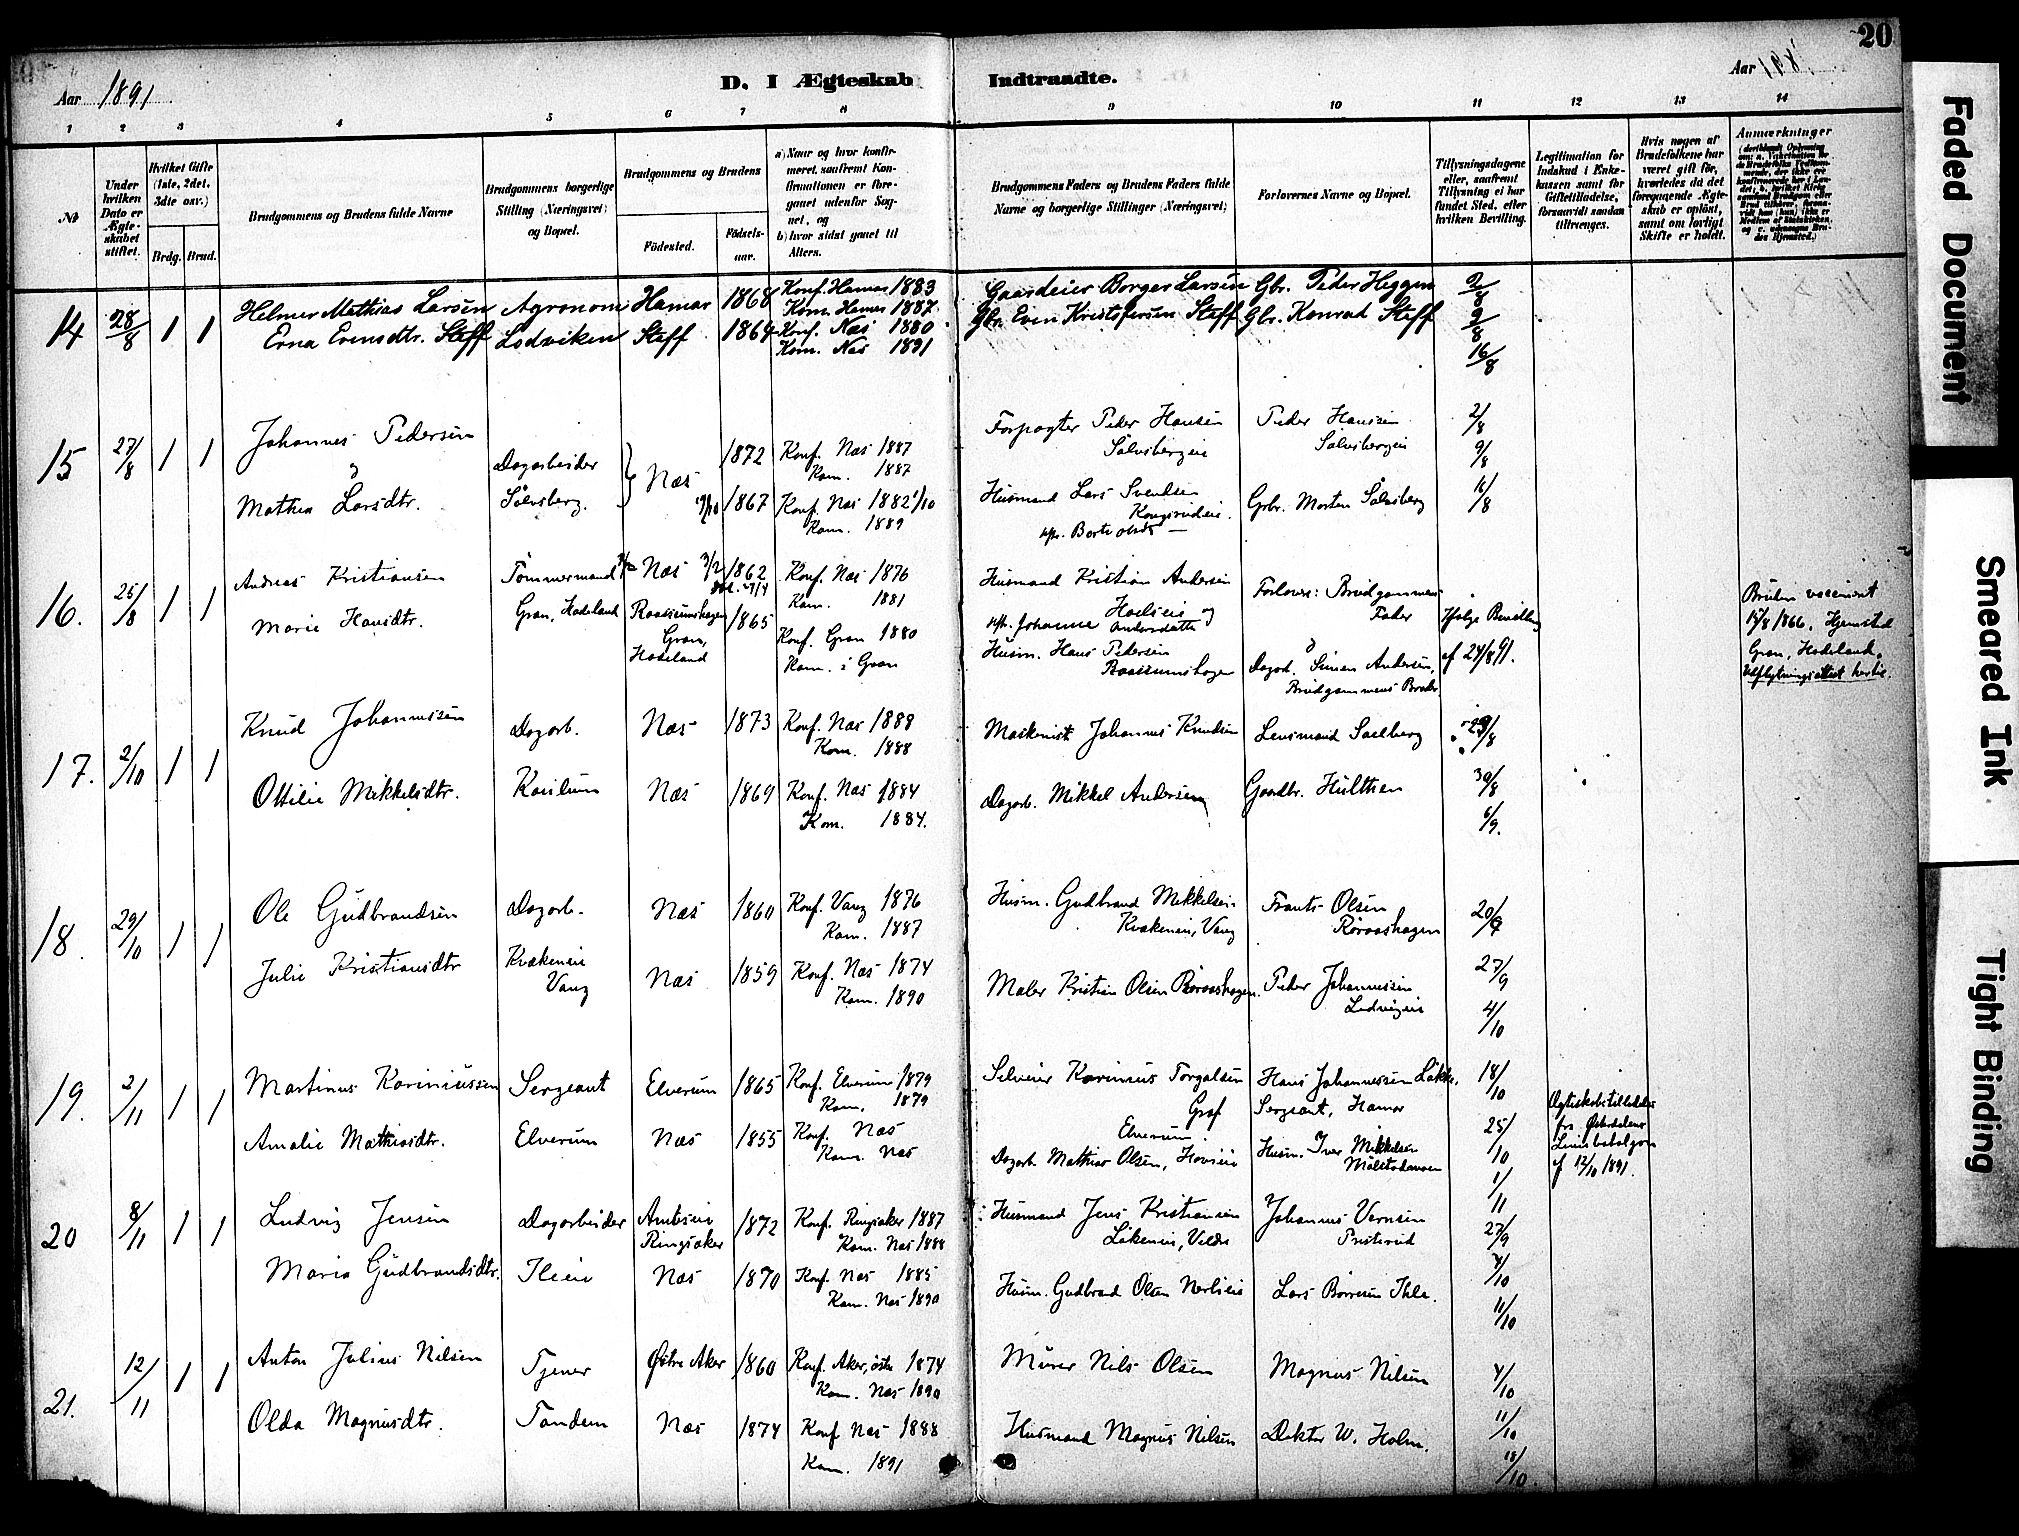 20
Aar 1891
D. I Ægteskab Indtraadte.
Aar 1891
1 2 3 4 5 6 7 8 9 10 11 12 13 14
№
Under hvilken Dato er Ægteskabet stiftet.
Hvilket Gifte (1ste, 2det, 3dte osv.)
Brdg. Brud.
Brudgommens og Brudens fulde Navne
Brudgommens borgerlige Stilling (Næringsvei) og Bopæl.
Brudgommens og Brudens
Födested.
Födselsaar.
a) Naar og hvor konfirmeret, saafremt Konfirmationen er foregaaet udenfor Sognet, og
b) hvor sidst gaaet til Alters.
Brudgommens Faders og Brudens Faders fulde Navne og borgerlige Stillinger (Næringsvei)
Forlovernes Navne og Bopæl.
Tillysningsdagene eller, saafremt Tillysning ei har fundet Sted, efter hvilken Bevilling.
Legitimation for Indskud i Enkekassen samt for Giftetilladelse, forsaavidt saadan tiltrænges.
Hvis nogen af Brudefolkene har været gift før, hvorledes da det foregaaende Ægteskab er oplöst, samt om lovligt Skifte er holdt.
Anmærkninger
14 28/8 1 1
Helmer Mathias Larsen Agronom Hamar 1868 Konf. Hamar 1883
Kom. Hamar 1887
Erna Evensdtr. Steff Lodviken Steff 1864 Konf. Næs 1880
Kom. Næs 1891
Gaardeier Borger Larsen Gbr. Peder Heggen 2/8
Gbr. Even Kristofersen Steff Gbr. Konrad Steff 9/8
16/8
15 27/8 1 1
Johannes Pedersen
&
Mathea Larsdtr.
Dagarbeider
Sølvsberg.
Næs
1872 Konf. Næs 1887
Kom. 1887
1867 Konf. Næs 1882 1/10
Kom. 1889
Forpagter Peder Hansen
Sølvsbergeie
Peder Hansen
Sølvsbergeie
2/8
9/8
Husmand Lars Svendsen
Grbr. Morten Sølvsberg
16/8
16. 25/8 1 1
Andreas Kristiansen Tømmermand Næs 3/2 1862 Konf. Næs 1876
Kom. 1881
Marie Hansdtr. Gran, Hadeland
Gran,
Hadeland
1865
Konf. Gran 1880
Kom. i Gran
Husmand Kristian Andersen
og
Johanne Andersdatter
Husm. Hans Pedersen
Forlovere: Brudgommens
Fader
&
Dagarb. Simen Andersen,
Brudgommens Broder
Ifølge Bevilling
af 24/8 91.
Bruden vaccineret
17/8 1866. Hjemsted
Gran, Hadeland.
Udflytningsattest hertil.
17. 2/10 1 1
Knud Johannessen Dagarb. Næs 1873 Konf. Næs 1888
Kom. 1888
Ottilie Mikkelsdtr. Næs 1869 Konf. Næs 1884
Kom. 1884.
Maskinist Johannes Knudsen Lensmand Saelberg 23/8
Dagarb. Mikkel Andersen Gaardbr. Hulthen 30/8
6/9.
18. 29/10 1 1
Ole Gudbrandsen Dagarb. Næs 1860 Konf. Vang 1876
Kom. 1887
Julie Kristiansdtr Kvækeneie
Vang
Næs 1859 Konf. Næs 1874
Kom. 1890
Husm. Gudbrand Mikkelsen
Kvækeneie, Vang
Frants Olsen
Røraashagen
20/9
27/9
Maler Kristian Olsen Røraashagen. Peder Johannessen
4/10
19. 2/11 1 1
Martinus Kariniussen Sergeant Elverum 1865 Konf. Elverum 1879
Kom. 1879
Amalie Mathiasdtr. Elverum Næs 1855 Konf. Næs
Kom. Næs
Selveier Karinius Torgalsen
Graf
Elverum.
Hans Johannessen Løkke.
Sergeant, Hamar
18/10
25/10
1/11
Dagarb. Mathias Olsen, Hovseie Husm. Iver Mikkelsen
Ægteskabstilladelse
fra Østerdalens
Liniebataljon
af 12/10 1891.
20 8/11 1 1
Ludvig Jensen Dagarbeider
Ringsaker
1872 Konf. Ringsaker 1887
Kom. Næs 1888
Maria Gudbrandsdtr. Næs 1870 Konf. Næs 1885
Kom. Næs 1890
Husmand Jens Kristiansen
Løkeneie, Veldre
Johannes Vernsen
Presterud
27/9
4/10
Husm. Gudbrand Olsen Lars Børresen Ihle.
11/10
21. 12/11 1 1
Anton Julius Nilsen Tjener Østre Aker 1860 Konf. Aker, østre 1874
Kom. Næs 1890
Olda Magnusdtr. Tandem Næs 1874 Konf Næs 1888
Kom. 1891
Murer Nils Olsen Magnus Nilsen 4/10
11/10
Husmand Magnus Nilsen Doktor W. Holm.
18/10.
Faded Document
Smeared Ink
Tight Binding